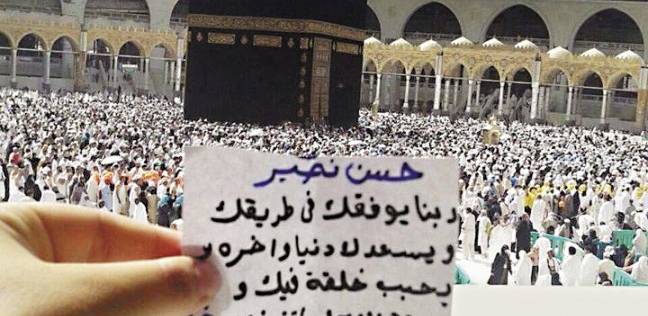 حسن نصير
ربنا يوفقك في طريقك
ويسعدك دنيا واخره و
يحبب خلقة فيك و